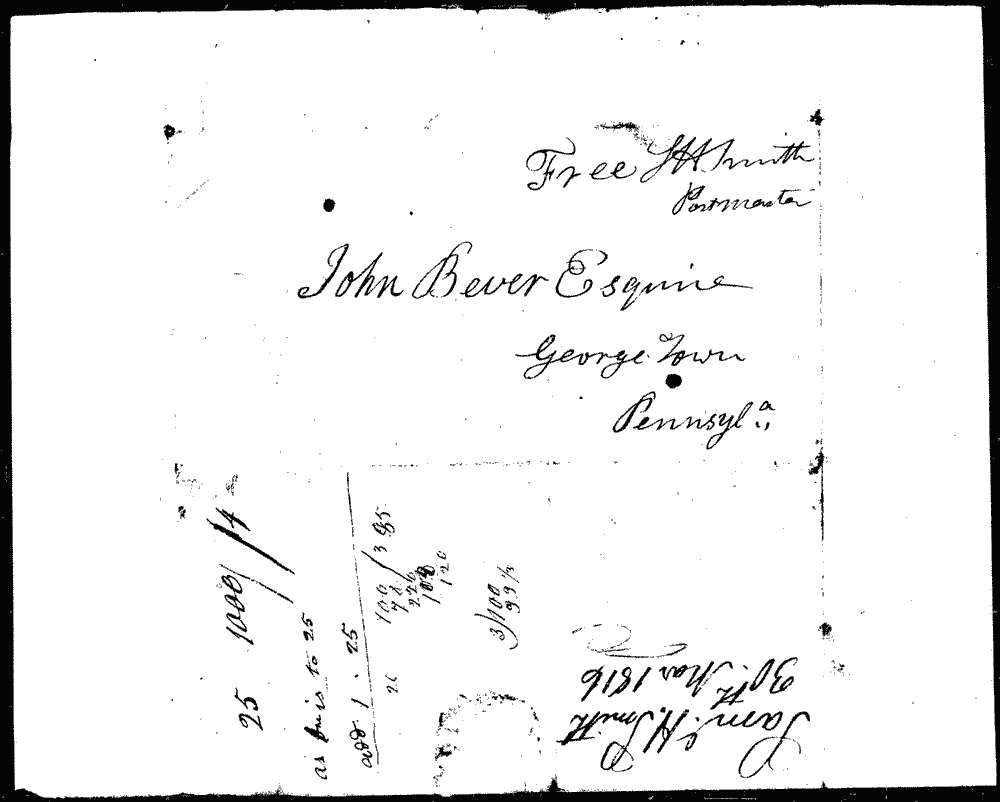 Free SHSmith
Postmaster
John Bever Esquire
George Town
Pennsylª
25 1000/14
as is to 25
add 1 . 25
26
100/385
78
226
120
3)100
33⅓
Saml. H. Smith
30th. Mar. 1816